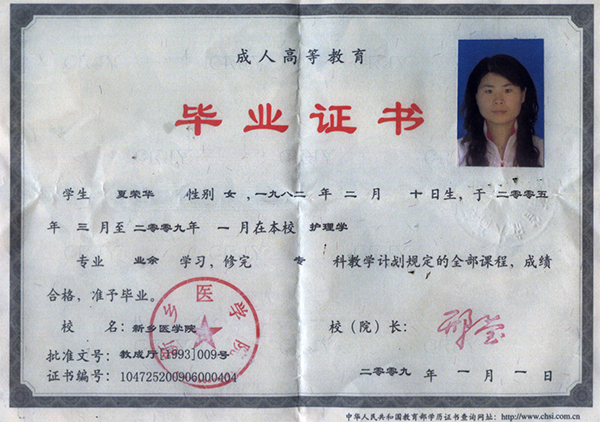 成人高等教育
毕业证书
学生 夏荣华 性别 女，一九八二年 二 月 十日生，于 二〇〇五
年 三 月至 二〇〇九 年 一 月在本校 护理学
专业 业余 学习，修完 专 科教学计划规定的全部课程，成绩
合格，准予毕业。
校 名：新乡医学院
校（院）长：
批准文号：教成厅[1993]009号
证书编号：104725200906000404
二〇〇九 年 一 月 一 日
新乡医学院
中华人民共和国教育部学历证书查询网址：http://www.chsi.com.cn